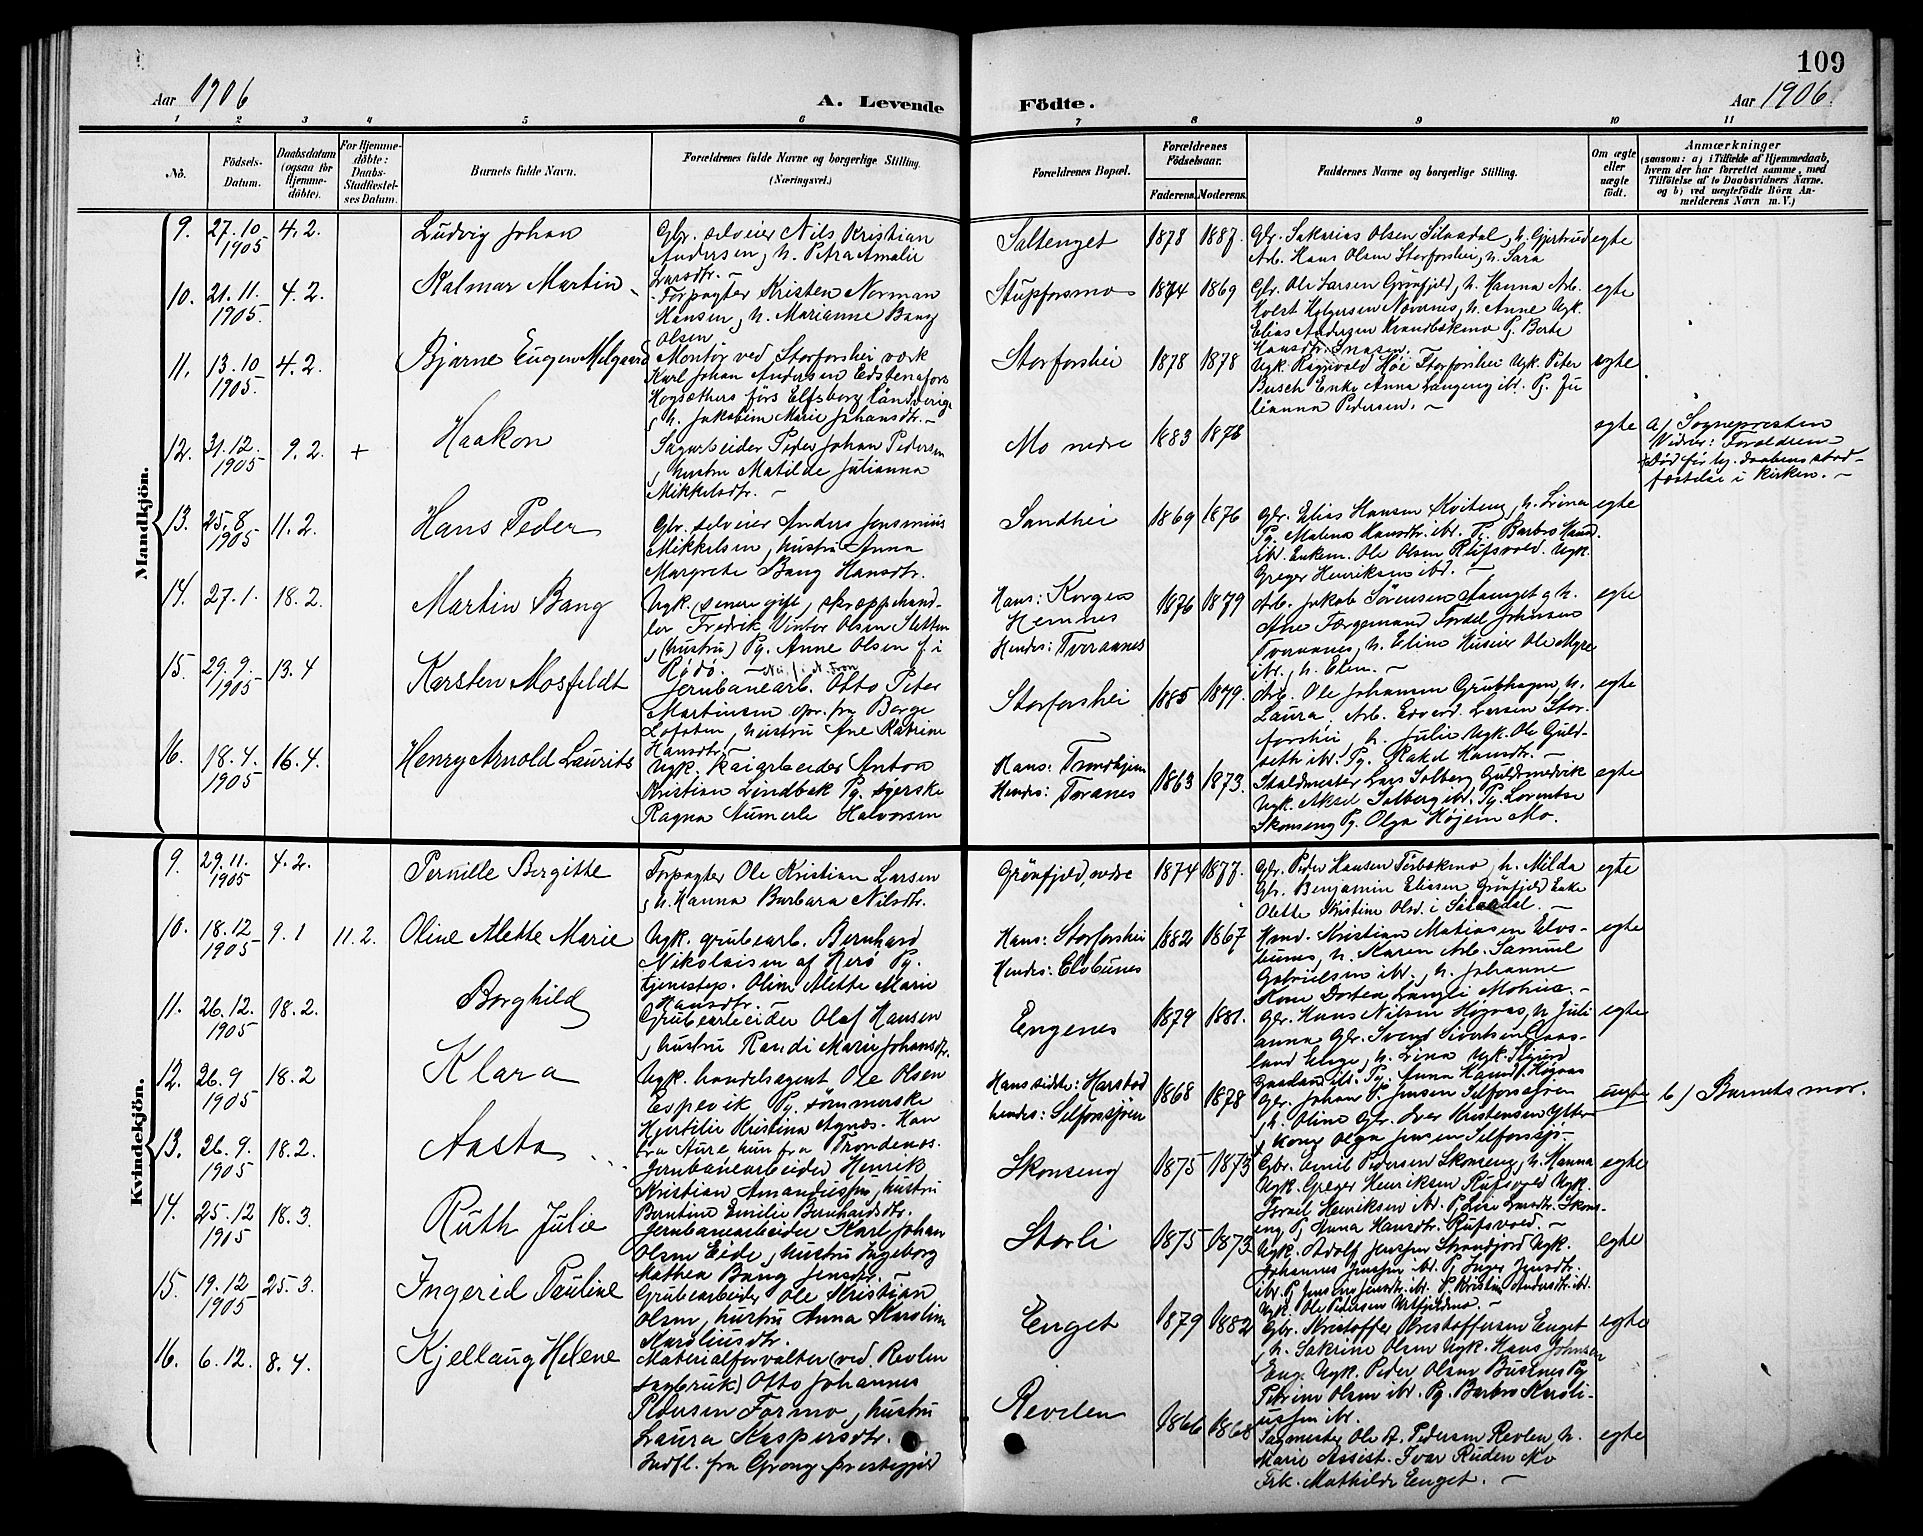 109
Aar 1906
A. Levende
Födte.
Aar 1906.
1 2 3 4 5 6 7 8 9 10 11
No.
Födsels-
Datum.
Daabsdatum
(ogsaa for
Hjemme-
döbte).
For Hjemme-
döbte:
Daabs-
Stadfæstel-
ses Datum.
Barnets fulde Navn.
Forældrenes fulde Navne og borgerlige Stilling.
(Næringsvei.)
Forældrenes Bopæl.
Forældrenes
Födselsaar.
Faderens. Moderens.
Faddernes Navne og borgerlige Stilling.
Om ægte
eller
uægte
født.
Anmærkninger
(saasom: a) i Tilfælde af Hjemmedaab,
hvem der har forrettet samme, med
Tilföielse af to Daabsvidners Navne,
og b) ved uægtefödte Börn An-
melderens Navn m. V.)
Mandkjön.
9. 27.10 1905 4.2. Ludvig Johan
Gbr. selveier Nils Kristian
Andersen, h. Petra Amalie
Larsdtr. -
Saltenget 1878 1887.
Gbr. Sakarias Olsen Silaadal, h. Gjertrud
Arb. Hans Olsen Storforshei, h. Sara
egte
10. 21.11. 1905. 4.2. Halmar Martin
Forpagter Kristen Norman
Hansen, h. Marianne Bang
Olsen
Stupforsmo 1874 1869
Gbr. Ole Larsen Grönfjeld, h. Hanna Arb.
Holst Helgersen Nævernes, h. Anne Ugk.
Elias Andersen Kvandbækmo Pg. Berte
Hansdtr. Snasen.
egte
11. 13.10 1905. 4.2. Bjarne Eugen Melgaard
Montör ved Storforshei værk
Karl Johan Andersen Edstenafors
h. Jakobine Marie Johansdtr. -
Storforshei 1878 1878
Ugk. Ragnvald Høe Storforshei Ugk. Peter
Busch Enke Anna Langeng ibr. Pg. Ju
lianna Pedersen. -
egte
12. 31.12. 1905 9.2. + Haakon
Sagarbeider Peder Johan Pedersen
, hustru Matilde Julianna
Mikkelsdtr. -
Mo nedre 1883 1878 egte
a) Sognepresten
Vidner: Foreldrene
Död för hj. daabens stad-
fæstelse i kirken. -
13. 25.8 1905 11.2. Hans Peder
Gbr. selveier Anders Jensenius
Mikkelsen, hustru Anna
Margrete Bang Hansdtr.
Sandhei 1869 1876
Gbr. Elias Hansen Kviteng, h. Lina
Pg. Malena Hansdtr. ibr. Pg. Barbro Hansd.
ibr. Enkem. Ole Olsen Rufsvold. Ugk.
Greger Henriksen ibd. -
egte
14. 27.1. 18.2. Martin Bang
Ugk. (senere gift, skræppehand-
ler Fredrik Vinter Olsen Sletten
, (hustru) Pg. Anne Olsen f. i
Rödö. -
Hans: Korgen
Hemnes
Hendes: Tveraanes
1876 1879
Arb. Jakob Sörensen Stanget g h.
Ane Færgemand Fordel Johnsen
Tveraanes, h. Eline Huseier Ole Myre
ibr., h. Elen. -
egte
15. 29.9. 1905 13.4 Karsten Mosfeldt
Jernbanearb. Otto Peter
Martinsen opr. fra Borge
Lofoten, hustru Ane Katrine
Hansdtr. -
Storforshei 1885 1879.
Arb. Ole Johansen Grubhagen, h.
Laura. Arb. Edvard Larsen Stor-
forshei h. Julie Ugk. Ole Guld-
seth ibr. Pg. Rakel Hansdtr. -
egte
16. 18.4. 1905 16.4. Henry Arnold Laurits
Ugk. kaiarbeider Anton
Kristian Lindbæk Pg. syerske
Ragna Numerle Halvorsen
Hans: Trondhjem
Hendes: Toranes
1863 1873.
Staldmester Lars Solberg Guldsmedvik
Ugk. Aksel Solberg ibr. Pg. Lorentse
Skonseng Pg. Olga Höjem Mo.
egte
Kvindekjön.
9. 29.11. 1905 4.2. Pernille Bergitte
Forpagter Ole Kristian Larsen
, h. Hanna Barbara Nilsdtr.
Grönfjeld, nedre 1874 1877.
Gbr. Peder Hansen Förbækmo, h. Milda
Gbr. Benjamin Eliasen Grönfjeld Enke
Olette Kristine Olsd. i Silaadal. -
egte
10. 18.12 1905 9.1 11.2. Oline Alette Marie
Ugk. grubearb. Bernhard
Nikolaisen af Herö Pg.
tjenestep. Oline Alette Marie
Hansdtr. -
Hans: Storforshei
Hendes: Elvbunes
1882 1867
Hmd. Kristian Matiasen Elvs-
bunes, h. Karen Arb. Samuel
Gabrielsen ibr., h. Johanne
Kone Dortea Langli Mohus. -
egte
11. 26.12. 1905 18.2. Borghild
Grubearbeider Olaf Hansen
, hustru Randi Marie Johansdtr.
Engenes 1879 1881.
Gbr. Hans Nilsen Högaas, h. Juli
anna Gbr. Svend Sivertsen Gaas-
land Enge, h. Lina Ugk. Sigurd
Gaasland ibr. Pg. Anna Hansd. Högaas
egte
12. 26.9 1905 18.2 Klara
Ugk. handelsagent Ole Olsen
Evpevik Pg. sömmerske
Hjertilie Kristina Agnes. Han
fra Aure hun fra Trondenes.
Hans sidste: Harstad
hendes: Selforssjöen
1868 1878
Gbr. Johan P. Jensen Selforssjöen
, h. Oline Gbr. Iver Kristensen Ytter
, Kone Olga Jensen Selforssjö -
uegte b) Barnets mor.
13. 26.9. 1905 18.2. Aasta
Jernbanearbeider Henrik
Kristian Amandussen, hustru
Berntine Emilie Bernhardsdtr.
Skonseng 1875 1873
Gbr. Emil Pedersen Skonseng, h. Hanna
Ugk. Greger Henriksen Rufsvold Ugk.
Torvil Henriksen ibr. Pg. Lise Larsdtr. Skons-
eng Pg. Anna Hansdtr. Rufsvold. -
egte
14. 25.12 1905 18.3. Ruth Julie
Jernbanearbeider Karl Johan
Olsen Eide, hustru Ingeborg
Mathea Bang Jensdtr.
Storli 1875 1873
Ugk. Adolf Jenssen Strandjord Ugk.
Johannes Jenssen ibr. Pg. Inger Jensdtr.
Ugk. Ole Pedersen Urtfjeldmo. -
egte
15. 19.12 1905 25.3. Ingerid Pauline
Grubearbeider Ole Kristian
Olsen, hustru Anna Karoline
Karoliusdtr.
Enget 1879 1882
Gbr. Kristoffer Kristoffersen Enget
, h. Sakrine Olsen Ugk. Hans Johnsen
Eng. Ugk. Peder Olsen Busenes Pg.
Petrine Olsen ibr. Pg. Barbro Karoli-
ussen ibr.
egte
16. 6.12. 8.4. Kjellaug Helene
Materialforvalter (ved Revlen
sagbruk) Otto Johannes
Plousen Formo, hustru
Laura Kaspersdtr.
Indfl. fra Grong prestegjeld
Revlen 1866 1868
Sagmester Ole A. Pedersen Revlen h.
Marie Assist. Ivar Ruden Mo
Frk. Mathilde Enget. -
egte